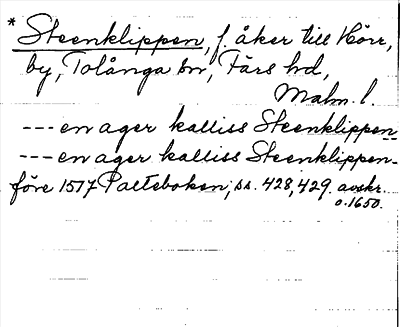 * Steenklippen, f. åker till Hörr,
by, Tolånga sn, Färs hd,
Malm. l.
--- en ager kalliss Steenklippen
--- en ager kalliss Steenklippen -
före 1517 Palteboken, ss. 428, 429. avskr.
o. 1650.